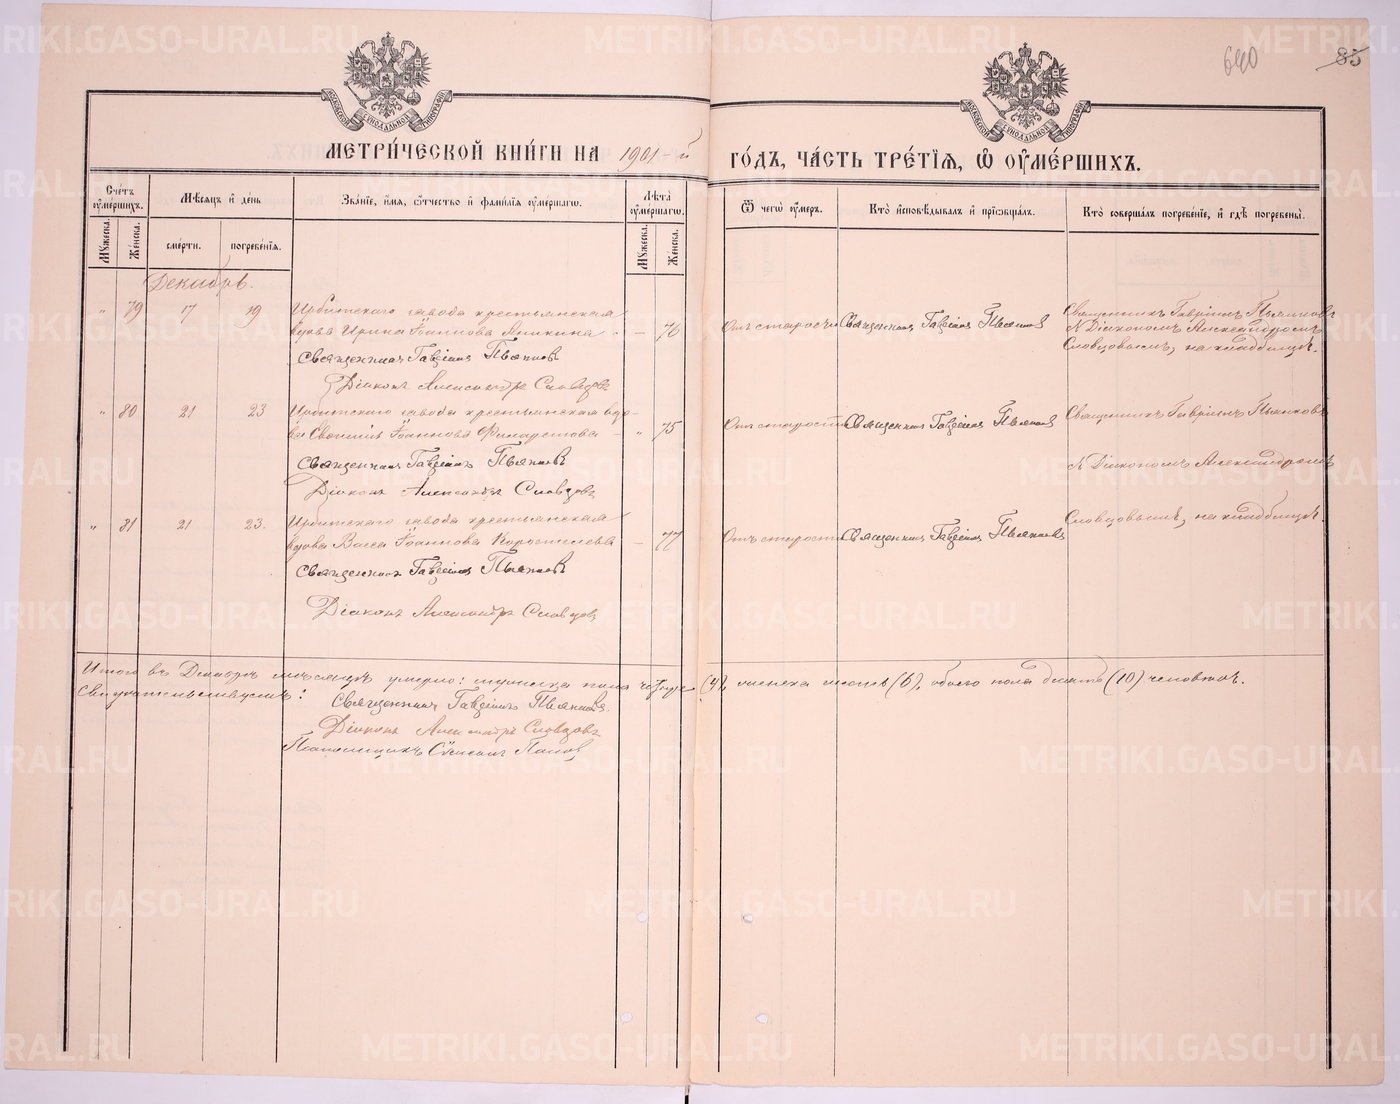 640
85
МОСКОВСКОЙ СѴНОДАЛЬНОЙ ТИПОГРАФІИ
МОСКОВСКОЙ СѴНОДАЛЬНОЙ ТИПОГРАФІИ
МЕТРИ́ЧЕСКОЙ КНИ́ГИ НА 1901-й ГО́ДЪ, ЧА́СТЬ ТРЕ́ТІѦ, Ѽ ОУМЕ́РШИХЪ.
Сче́тъ оуме́ршихъ.
Мꙋ́жеска.
Же́нска.
Мѣ́сѧцъ и҆ де́нь
сме́рти.
погребе́нїѧ.
Зва́нїе, и҆́мѧ, ѻ҆́тчество и҆ фами́лїѧ оуме́ршагѡ.
Лѣ́та оуме́ршагѡ.
Мꙋ́жеска.
Же́нска.
Ѿ чегѡ̀ оу́меръ.
Кто̀ и҆сповѣ́дывалъ и҆ прїѡбща́лъ.
Кто̀ соверша́лъ погребе́нїе, и҆ гдѣ̀ погребены̀.
Декабрь.
" 79 17 19 Ирбитскаго завода крестьянская
вдова Ирина Іоаннова - 76
Священникъ Гавріилъ Пьянковъ
Діаконъ Александръ Словцовъ
Отъ старости Священникъ Гавріилъ Пьянковъ
Священникъ Гавріилъ Пьянковъ
съ Діакономъ Александромъ
Словцовымъ, на кладбищѣ.
" 80 21 23 Ирбитскаго завода крестьянская вдо-
ва Іоаннова Филаретова - " 75
Священникъ Гавріилъ Пьянковъ
Діаконъ Александръ Словцовъ
Отъ старости Священникъ Гавріилъ Пьянковъ
Священникъ Гавріилъ Пьянковъ
съ Діакономъ Александромъ
Словцовымъ, на кладбищѣ.
" 81 21 23. Ирбитскаго завода крестьянская
вдова Васса Іоаннова Коростелева - 77
Священникъ Гавріилъ Пьянковъ
Діаконъ Александръ Словцовъ
Отъ старости Священникъ Гавріилъ Пьянковъ
Итого въ Декабрѣ мѣсяцѣ умерло: мужеска пола четыре (4), женска шесть (6), обоего пола десять (10) человѣкъ.
Свидѣтельствуемъ:
Священникъ Гавріилъ Пьянковъ.
Діаконъ Александръ Словцовъ
Псаломщикъ Сѷмеонъ Поповъ
METRIKI.GASO-URAL.RU